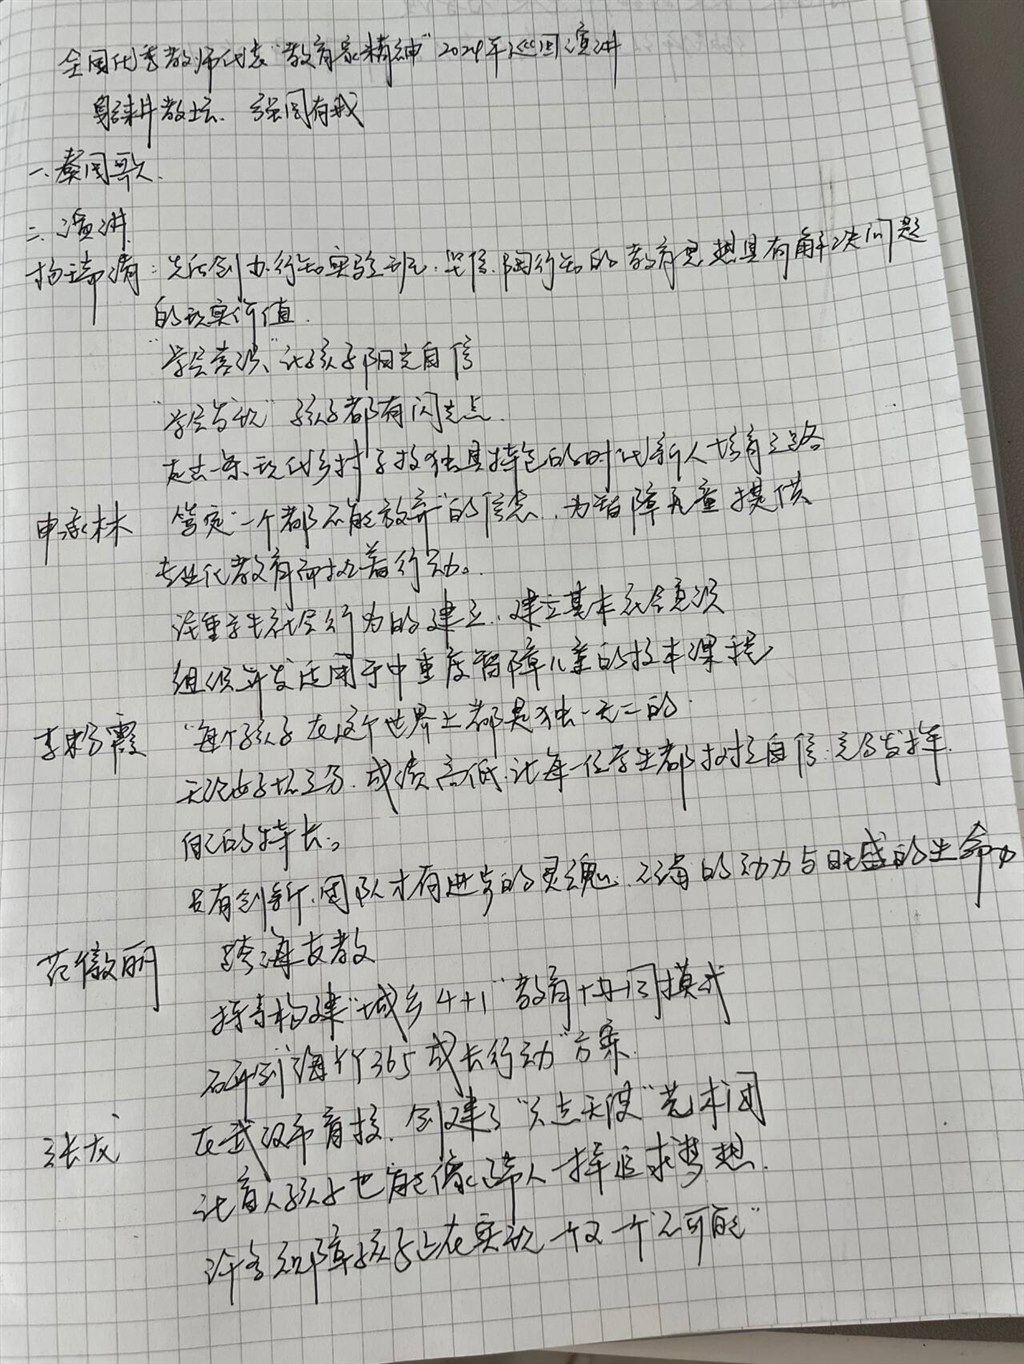 全国优秀教师代表"教育家精神"2024年巡回演讲
躬耕教坛、强国有我
一、奏国歌.
二、演讲
杨瑞清：先后创办行知实验班，坚信陶行知的教育思想具有解决问题
的现实价值.
"学会喜欢"让孩子阳光自信
"学会发现"孩子都有闪光点.
走出一条现代乡村学校独具特色的时代新人培育之路
申承林 笃定"一个都不能放弃"的信念,为智障儿童提供
专业化教育而执着行动。
注重学生社会行为的建立,建立基本社会意识
组织开发适用于中重度智障儿童的校本课程
李粉霞 "每个孩子在这个世界上都是独一无二的.
无论好坏之分,成绩高低,让每一位学生都找拉自信,充分发挥
自己的特长。
只有创新,团队才有进步的灵魂,不竭的动力与旺盛的生命力
范徵丽 跨海支教
探索构建"城乡4+1"教育协同模式
研创"海竹365成长行动"方案.
张龙 在武汉市盲校,创建了"六点天使"艺术团
让盲人孩子也能像常人一样追求梦想.
许多视障孩子正在实现一个又一个"不可能"